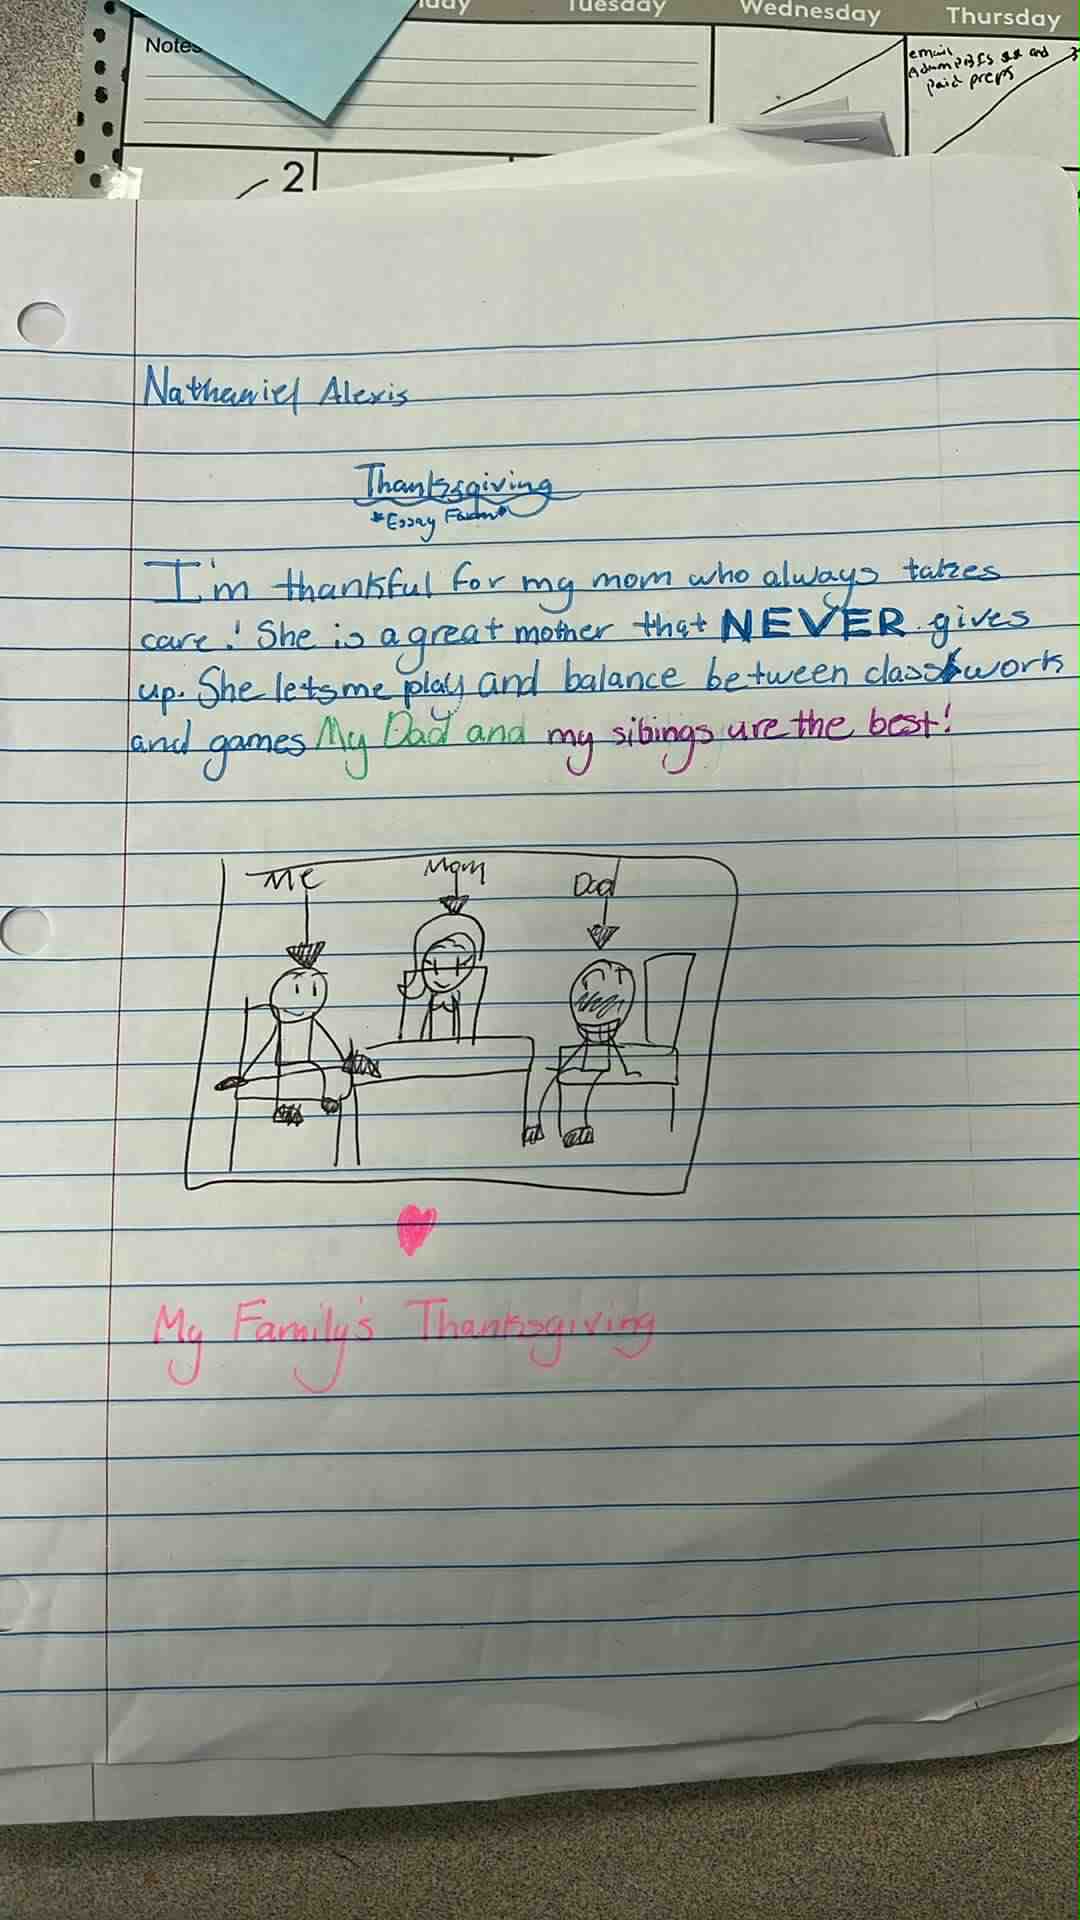 Tuesday
Wednesday
Thursday
Notes
email
and
paid preps
2
Nathaniel Alexis
Thanksgiving
*Essay Form*
I'm thankful for my mom who always takes
care! She is a great mother that NEVER gives
up. She lets me play and balance between classwork
and games My Dad and my sibings are the best!
Me
Mom
Dad
My Family's Thanksgiving